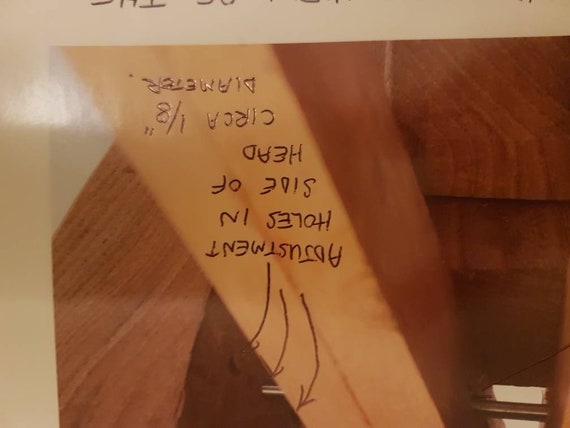 ADJUSTMENT
HOLES IN
SIDE OF
HEAD
CIRCA 1/8"
DIAMETER.
OF THE